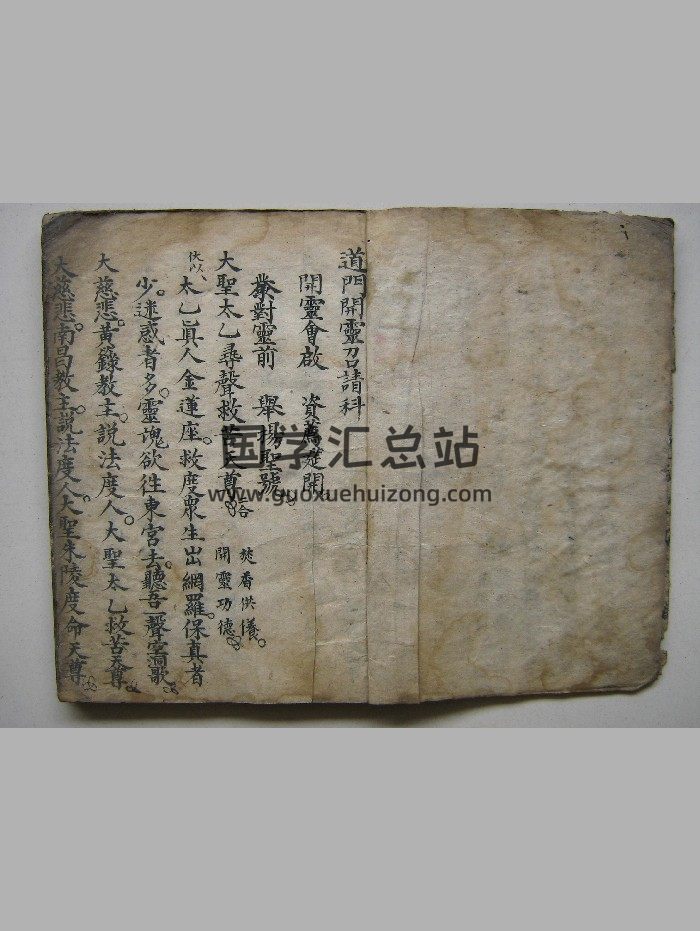 道門開靈召請科
開靈會啟 資薦楚開
對靈前 舉揚聖號
大聖太乙尋聲救苦天尊 焚香供養
開靈功德
伏以 太乙眞人金蓮座救度眾生出網羅保真者
少迷惑者多靈魂欲往東宮去聽吾一聲歌
大慈悲黃籙教主説法度人大聖太乙救苦天尊
大慈悲南昌教主説法度人大聖朱陵度命天尊
国学汇总站
www.guoxuehuizong.com